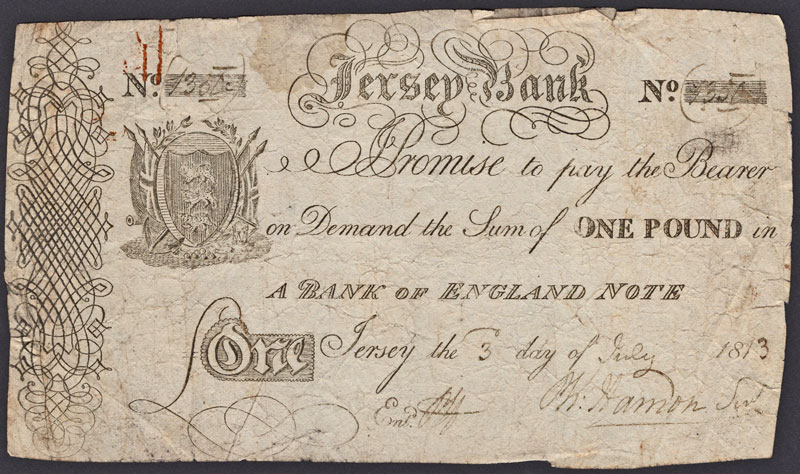 No. Jersey Bank No.
I Promise to pay the Bearer
on Demand the Sum of ONE POUND in
A BANK OF ENGLAND NOTE
£One Jersey the 3 day of July 1813
Entd.